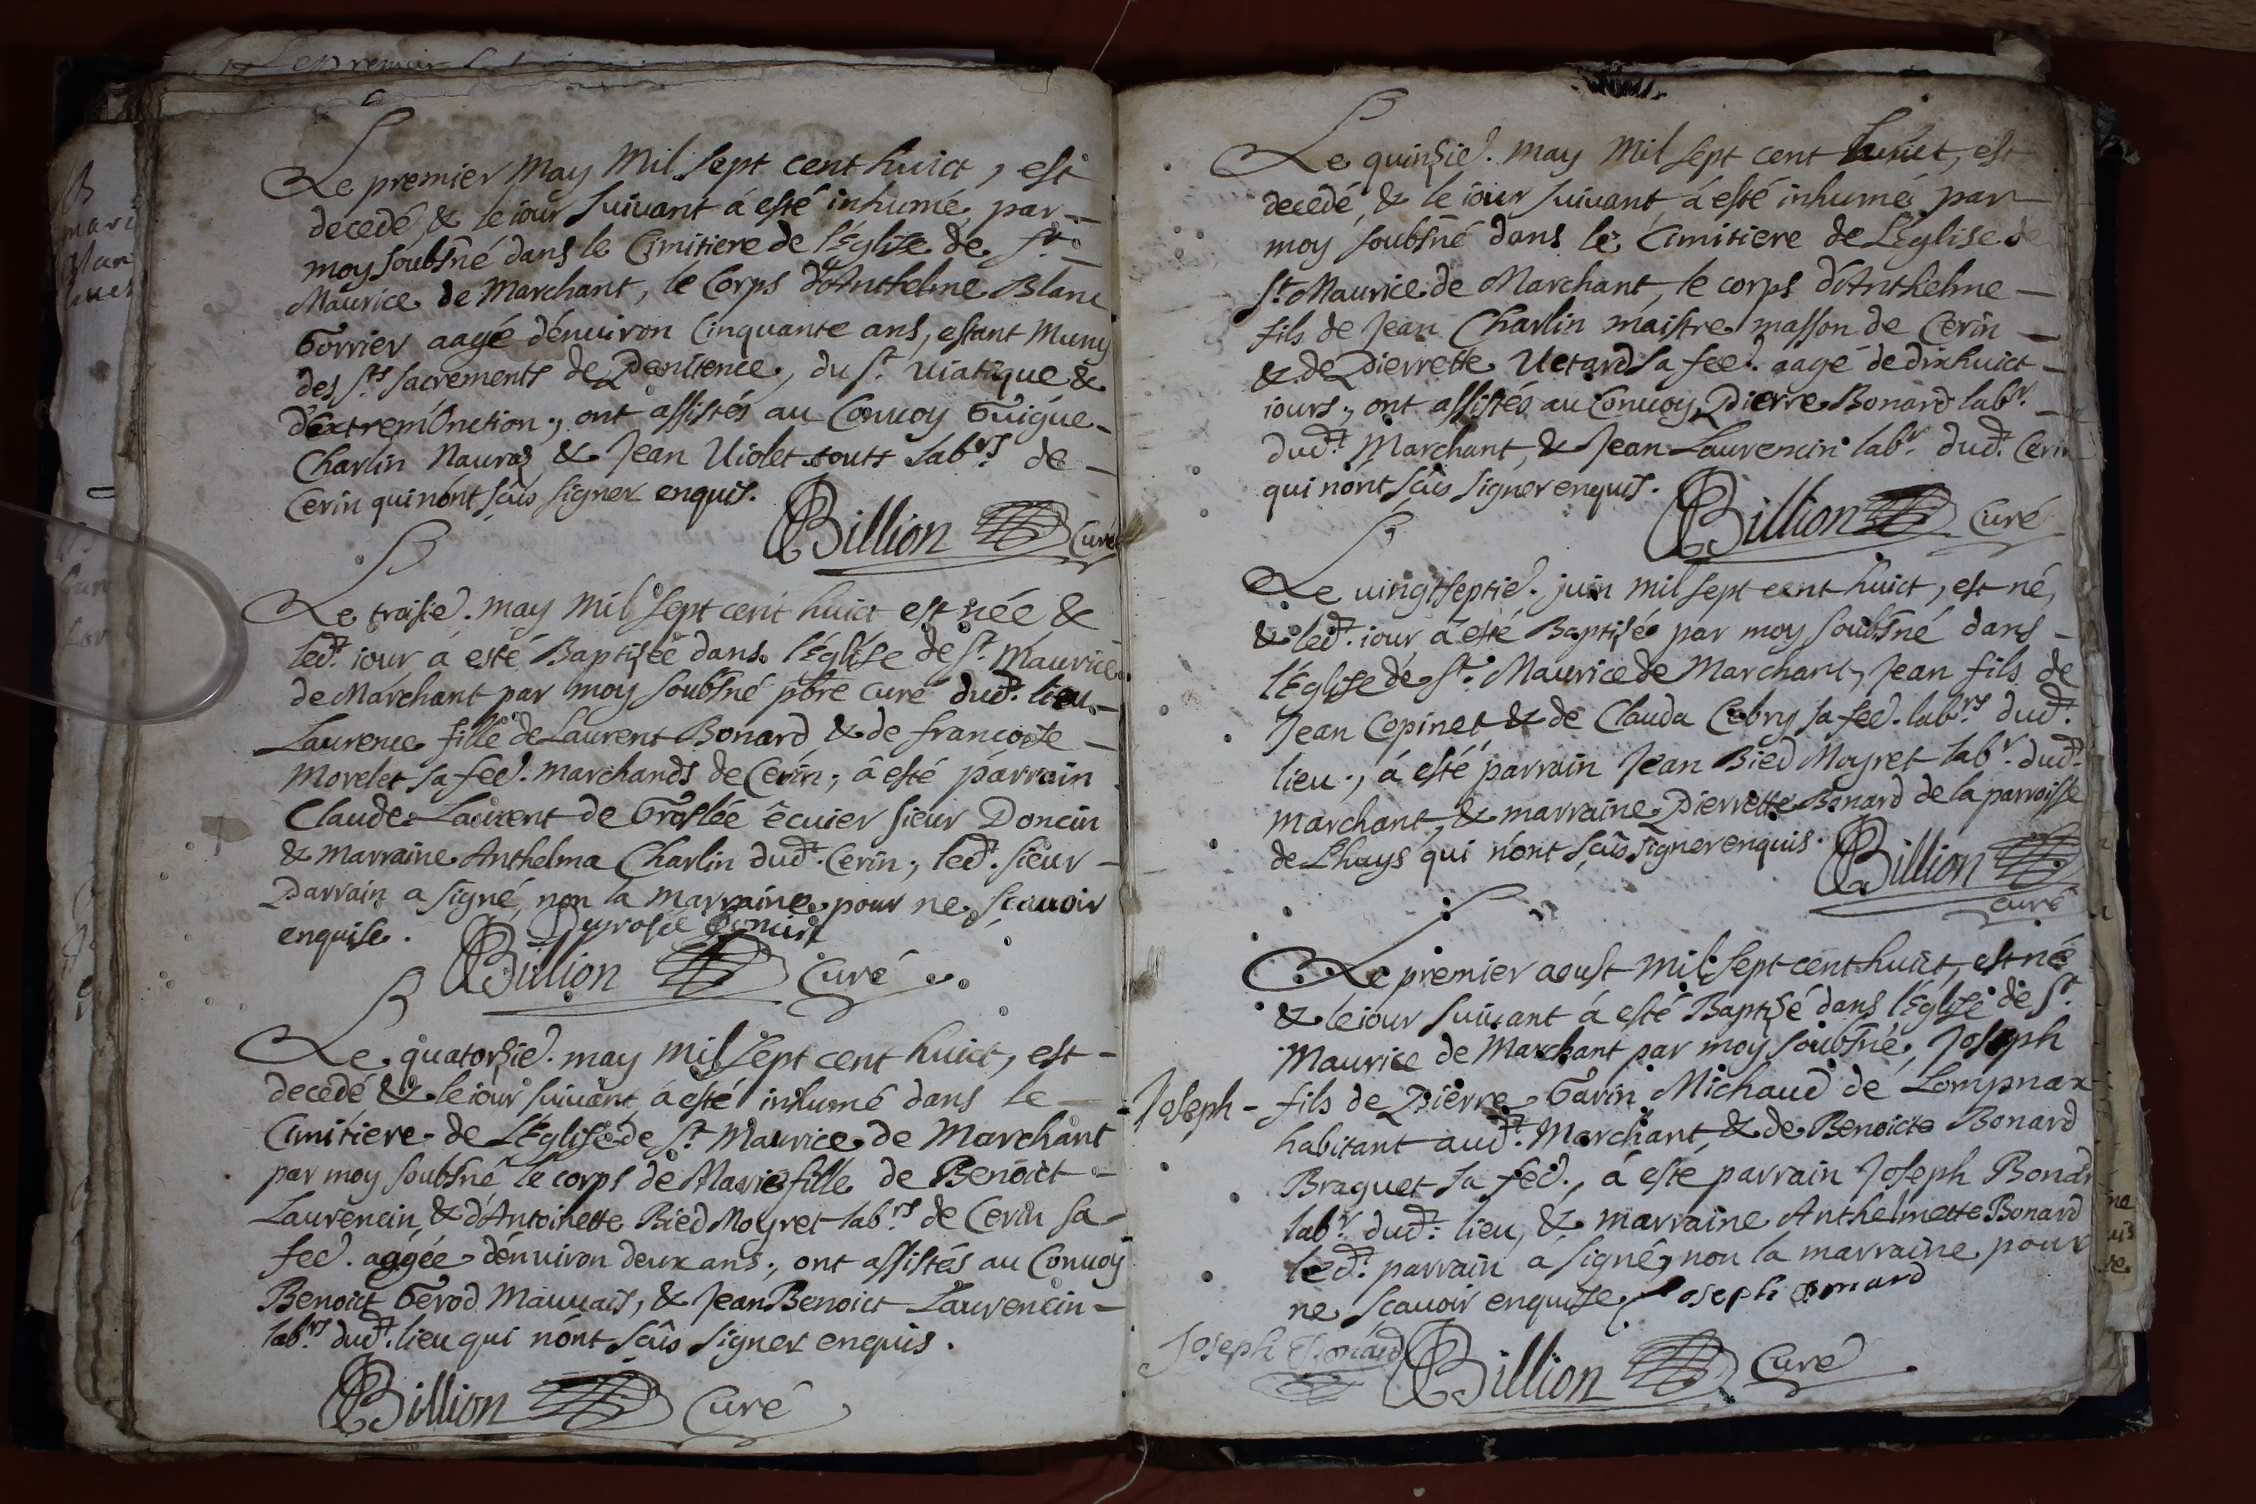 Le premier may mil sept cent huict, est
decedé & le iour suivant á esté inhumé par
moy soubsné dans le Cimitiere de l'Eglise de st.
Maurice de Marchant, le Corps d'Anthelme Blanc
Gorrier aagé d'enuiron Cinquante ans, estant muny
des sts sacrements de Penitence, du st. uiatique &
d'extrem'Onction; ont assistés au Conuoy Guigue
Charlin Nauraz & Jean Uiolet touts labrs. de
Cerin qui n'ont sçûs signer enquis.
Billion Curé
Le troisie. may mil sept cent huict est née &
led. iour a esté Baptisée dans l'Eglise de st. Maurice
de Marchant par moy soubsné pbre curé dud. lieu
Laurence fille de Laurent Bonard & de francoise
Morelet sa fee. marchands de Cerin; â esté parrain
Claude Laurent de Groslée écuier sieur Doncin
& marraine Anthelma Charlin dud. Cerin; led. sieur
Parrain a signé, non la marraine pour ne scauoir
enquise.
Billion Curé
Le quatorzie. may mil sept cent huict, est
decedé & le iour suiuant á esté inhumé dans le
Cimitiere de L'Eglise de st. Maurice de Marchant
par moy soubsné le corps de Marie fille de Benoict
Laurencin & d'Antoinette Bied Moyret labrs. de Cerin sa
fee. aagée d'enuiron deux ans; ont assistés au Conuoy
Benoict Gerod Mauuais, & Jean Benoict Laurencin
labrs. dud. lieu qui n'ont sçûs signer enquis.
Billion Curé
Le quinzie. may mil sept cent huict, est
decedé, & le iour suiuant á esté inhumé par
moy soubsné dans le Cimitiere de L'Eglise de
st. Maurice de Marchant, le corps d'Anthelme
fils de Jean Charlin maistre masson de Cerin
& de Pierrette Uetard sa fee. aagé de dixhuict
iours; ont assistés au Conuoy Pierre Bonard labr.
dud. Marchant, & Jean Laurencin labr. dud. Cerin
qui n'ont sçûs signer enquis.
Billion Curé
Le uingtseptie. juin mil sept cent huict, est né,
& led. iour á esté Baptisé par moy soubsné dans
l'Eglise de st. Maurice de Marchant, Jean fils de
Jean Copinet & de Clauda Cobry sa fee. labrs. dud.
lieu; á esté parrain Jean Bied Moyret labr. dud.
marchant, & marraine Pierrette Bonard de la parroisse
de Lhuys qui n'ont sçûs signer enquis.
Billion
curé
Le premier aoust mil sept cent huict, est né
& le iour suiuant á esté Baptisé dans l'Eglise de st.
Maurice de Marchant par moy soubsné, Joseph
Joseph - fils de Pierre Garin Michaud de Lompnax
habitant aud. Marchant & de Benoicte Bonard
Braguet sa fee.; á esté parrain Joseph Bonard
labr. dud. lieu, & marraine Anthelmette Bonard
led. parrain a signé, non la marraine pour
ne scauoir enquise. Joseph Bonard
Joseph Bonard Billion Curé